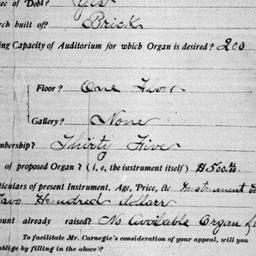 ee of Debt? Yes
rch built of? Brick
ing Capacity of Auditorium for which Organ is desired? 200
Floor? One Floor
Gallery? None
mbership? Thirty Five
of proposed Organ? (i, e, the instrument itself) $500.
ticulars of present Instrument, Age, Price, &c Instrument
Two Hundred dollars
ount already raised? No Available Organ
To facilitate Mr. Carnegie's consideration of your appeal, will you
oblige by filling in the above?